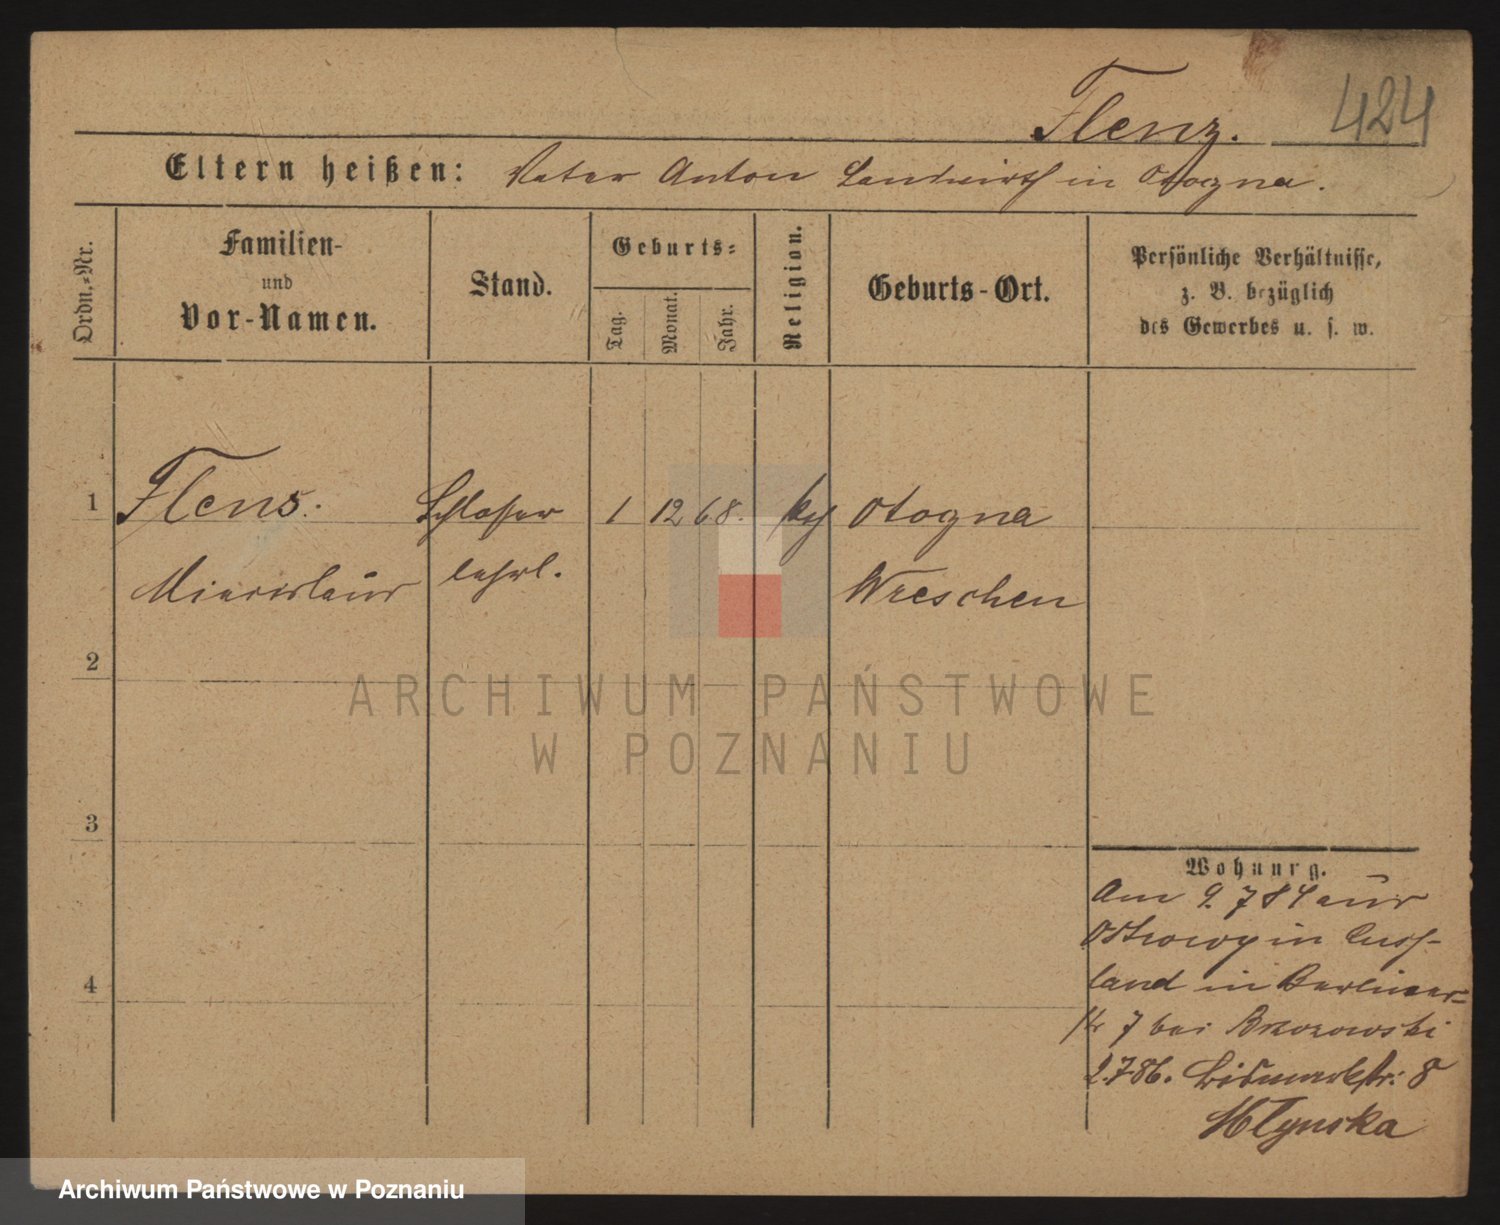 424
Flenz.
Eltern heißen: Vater Anton Landwirth in Otogna.
Ordn.-Nr.
Familien-
und
Vor-Namen.
Stand.
Geburts-
Tag.
Monat.
Jahr.
Religion.
Geburts-Ort.
Persönliche Verhältnisse,
z. B. bezüglich
des Gewerbes u. s. w.
1 Flens. Schlosser 1 12 68. Otogna
lehrl. Wreschen
2
3
4
Wohnung.
Am 9. 7 84 aus
in Russ-
land in Berliner-
str 7 bei Brzozowski
2.7 86. Bismarckstr: 8
Mlynska
ARCHIWUM PAŃSTWOWE
W POZNANIU
Archiwum Państwowe w Poznaniu